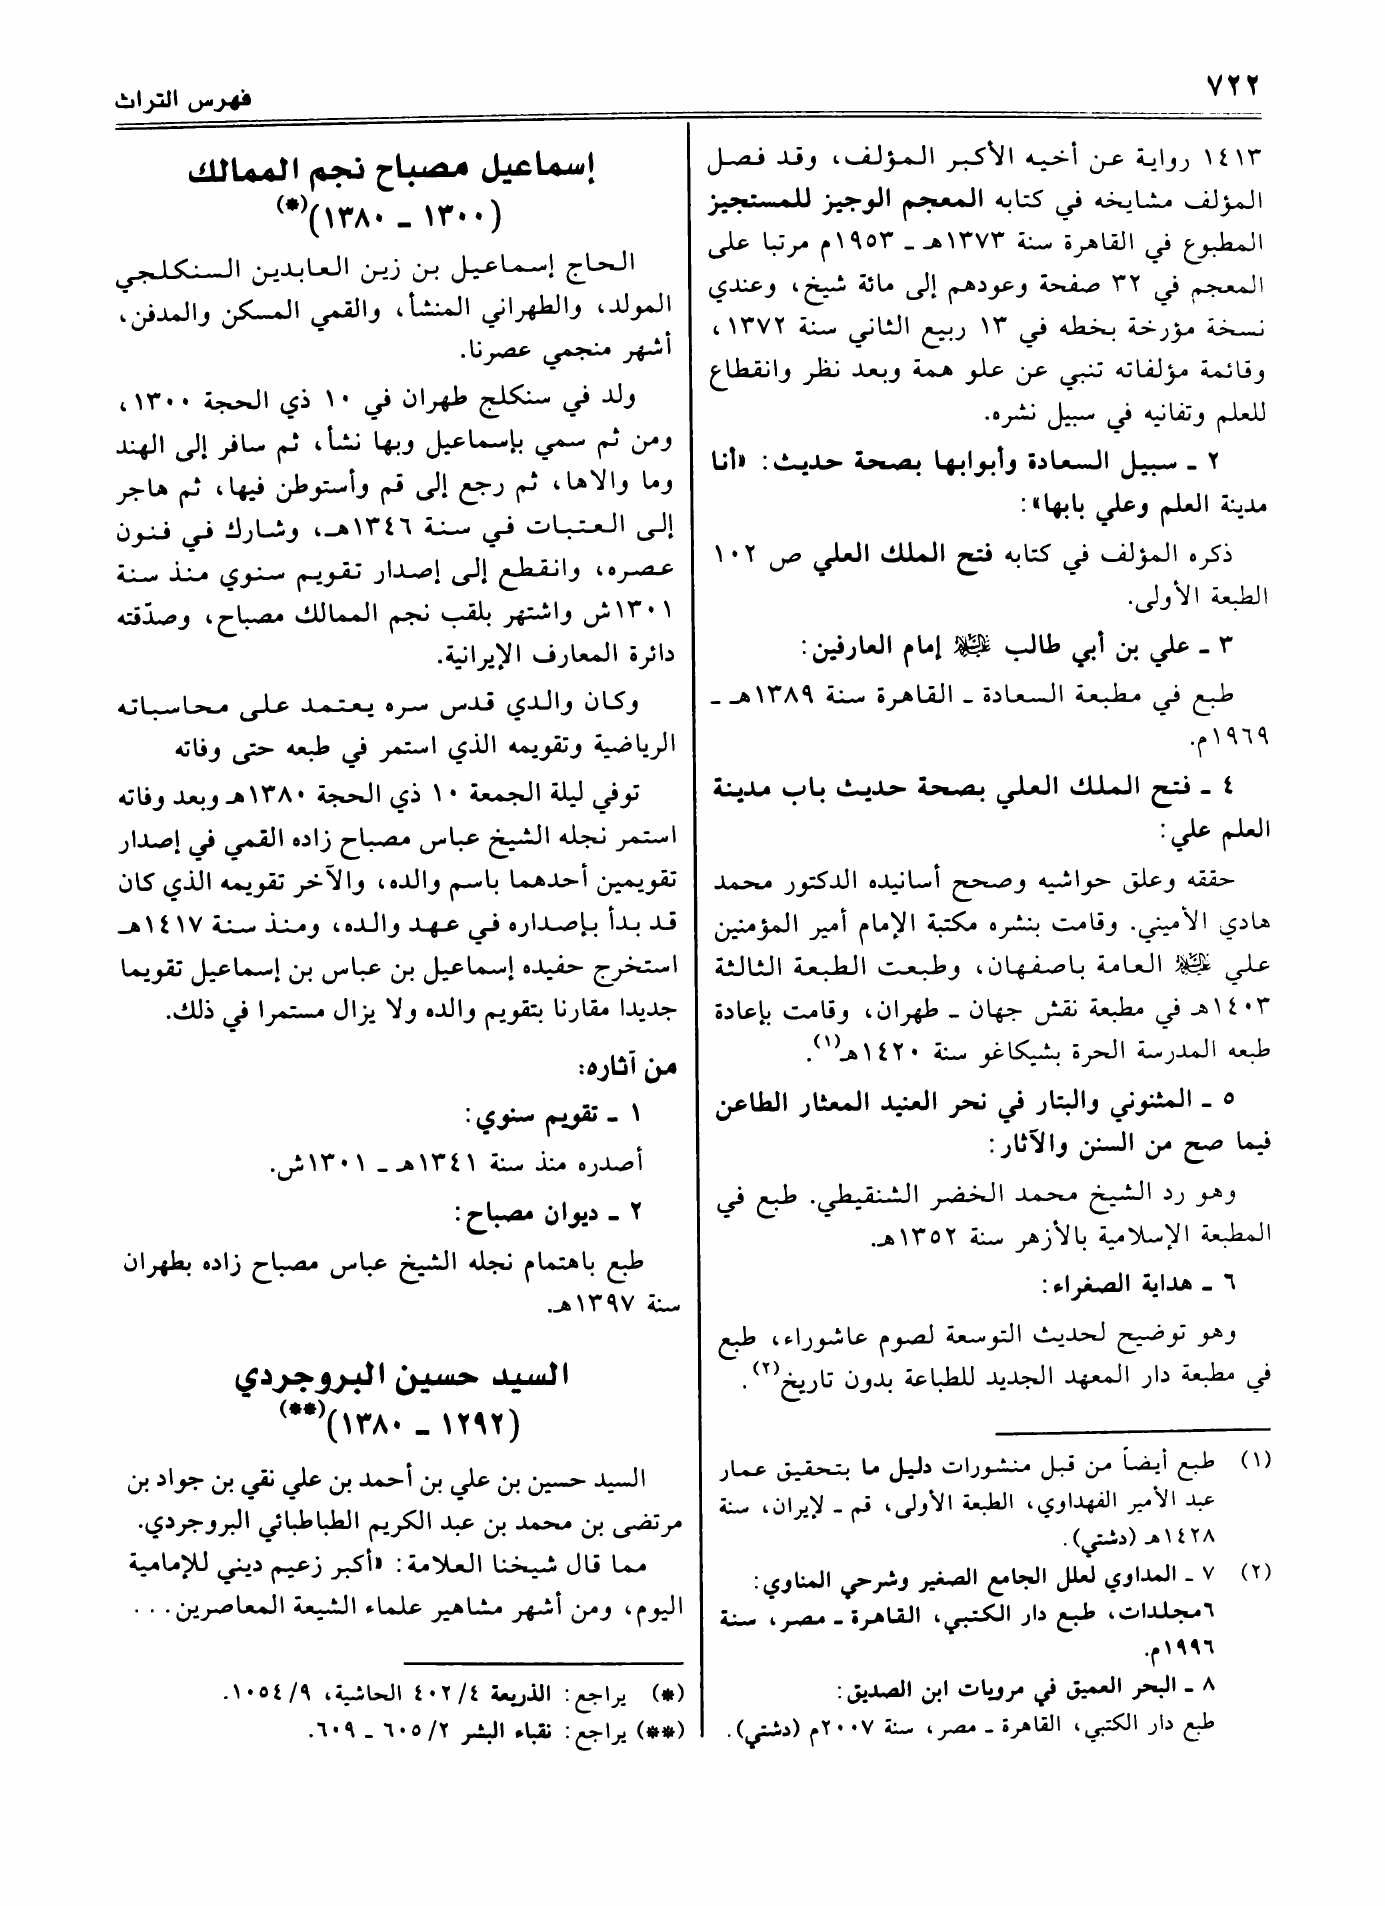 ٧٢٢
فهرس التراث
١٤١٣ رواية عن أخيه الأكبر المؤلف، وقد فصل
المؤلف مشايخه في كتابه المعجم الوجيز للمستجيز
المطبوع في القاهرة سنة ١٣٧٣هـ ـ ١٩٥٣م مرتبا على
المعجم في ٣٢ صفحة وعودهم إلى مائة شيخ، وعندي
نسخة مؤرخة بخطه في ١٣ ربيع الثاني سنة ١٣٧٢،
وقائمة مؤلفاته تنبي عن علو همة وبعد نظر وانقطاع
للعلم وتفانيه في سبيل نشره.
٢ ـ سبيل السعادة وأبوابها بصحة حديث: «أنا
مدينة العلم وعلي بابها»:
ذكره المؤلف في كتابه فتح الملك العلي ص ١٠٢
الطبعة الأولى.
٣ ـ علي بن أبي طالب عليه السلام إمام العارفين:
طبع في مطبعة السعادة ـ القاهرة سنة ١٣٨٩هـ ـ
١٩٦٩م.
٤ ـ فتح الملك العلي بصحة حديث باب مدينة
العلم علي:
حققه وعلق حواشيه وصحح أسانيده الدكتور محمد
هادي الأميني. وقامت بنشره مكتبة الإمام أمير المؤمنين
علي عليه السلام العامة باصفهان، وطبعت الطبعة الثالثة
١٤٠٣هـ في مطبعة نقش جهان ـ طهران، وقامت بإعادة
طبعه المدرسة الحرة بشيكاغو سنة ١٤٢٠هـ(١).
٥ ـ المثنوني والبتار في نحر العنيد المعثار الطاعن
فيما صح من السنن والآثار:
وهو رد الشيخ محمد الخضر الشنقيطي. طبع في
المطبعة الإسلامية بالأزهر سنة ١٣٥٢هـ.
٦ ـ هداية الصغراء:
وهو توضيح لحديث التوسعة لصوم عاشوراء، طبع
في مطبعة دار المعهد الجديد للطباعة بدون تاريخ(٢).
(١) طبع أيضاً من قبل منشورات دليل ما بتحقيق عمار
عبد الأمير الفهداوي، الطبعة الأولى، قم ـ لإيران، سنة
١٤٢٨هـ (دشتي).
(٢) ٧ ـ المداوي لعلل الجامع الصغير وشرحي المناوي:
٦مجلدات، طبع دار الكتبي، القاهرة ـ مصر، سنة
١٩٩٦م.
٨ ـ البحر العميق في مرويات ابن الصديق:
طبع دار الكتبي، القاهرة ـ مصر، سنة ٢٠٠٧م (دشتي).
إسماعيل مصباح نجم الممالك
(١٣٠٠ ـ ١٣٨٠)(*)
الحاج إسماعيل بن زين العابدين السنكلجي
المولد، والطهراني المنشأ، والقمي المسكن والمدفن،
أشهر منجمي عصرنا.
ولد في سنكلج طهران في ١٠ ذي الحجة ١٣٠٠،
ومن ثم سمي بإسماعيل وبها نشأ، ثم سافر إلى الهند
وما والاها، ثم رجع إلى قم وأستوطن فيها، ثم هاجر
إلى العتبات في سنة ١٣٤٦هـ، وشارك في فنون
عصره، وانقطع إلى إصدار تقويم سنوي منذ سنة
١٣٠١ش واشتهر بلقب نجم الممالك مصباح، وصدّقته
دائرة المعارف الإيرانية.
وكان والدي قدس سره يعتمد على محاسباته
الرياضية وتقويمه الذي استمر في طبعه حتى وفاته
توفي ليلة الجمعة ١٠ ذي الحجة ١٣٨٠هـ وبعد وفاته
استمر نجله الشيخ عباس مصباح زاده القمي في إصدار
تقويمين أحدهما باسم والده، والآخر تقويمه الذي كان
قد بدأ بإصداره في عهد والده، ومنذ سنة ١٤١٧هـ
استخرج حفيده إسماعيل بن عباس بن إسماعيل تقويما
جديدا مقارنا بتقويم والده ولا يزال مستمرا في ذلك.
من آثاره:
١ ـ تقويم سنوي:
أصدره منذ سنة ١٣٤١هـ ـ ١٣٠١ش.
٢ ـ ديوان مصباح:
طبع باهتمام نجله الشيخ عباس مصباح زاده بطهران
سنة ١٣٩٧هـ.
السيد حسين البروجردي
(١٢٩٢ ـ ١٣٨٠)(**)
السيد حسين بن علي بن أحمد بن علي نقي بن جواد بن
مرتضى بن محمد بن عبد الكريم الطباطبائي البروجردي.
مما قال شيخنا العلامة: «أكبر زعيم ديني للإمامية
اليوم، ومن أشهر مشاهير علماء الشيعة المعاصرين...
(*) يراجع: الذريعة ٤/ ٤٠٢ الحاشية، ٩/ ١٠٥٤.
(**) يراجع: نقباء البشر ٢/ ٦٠٥ ـ ٦٠٩.